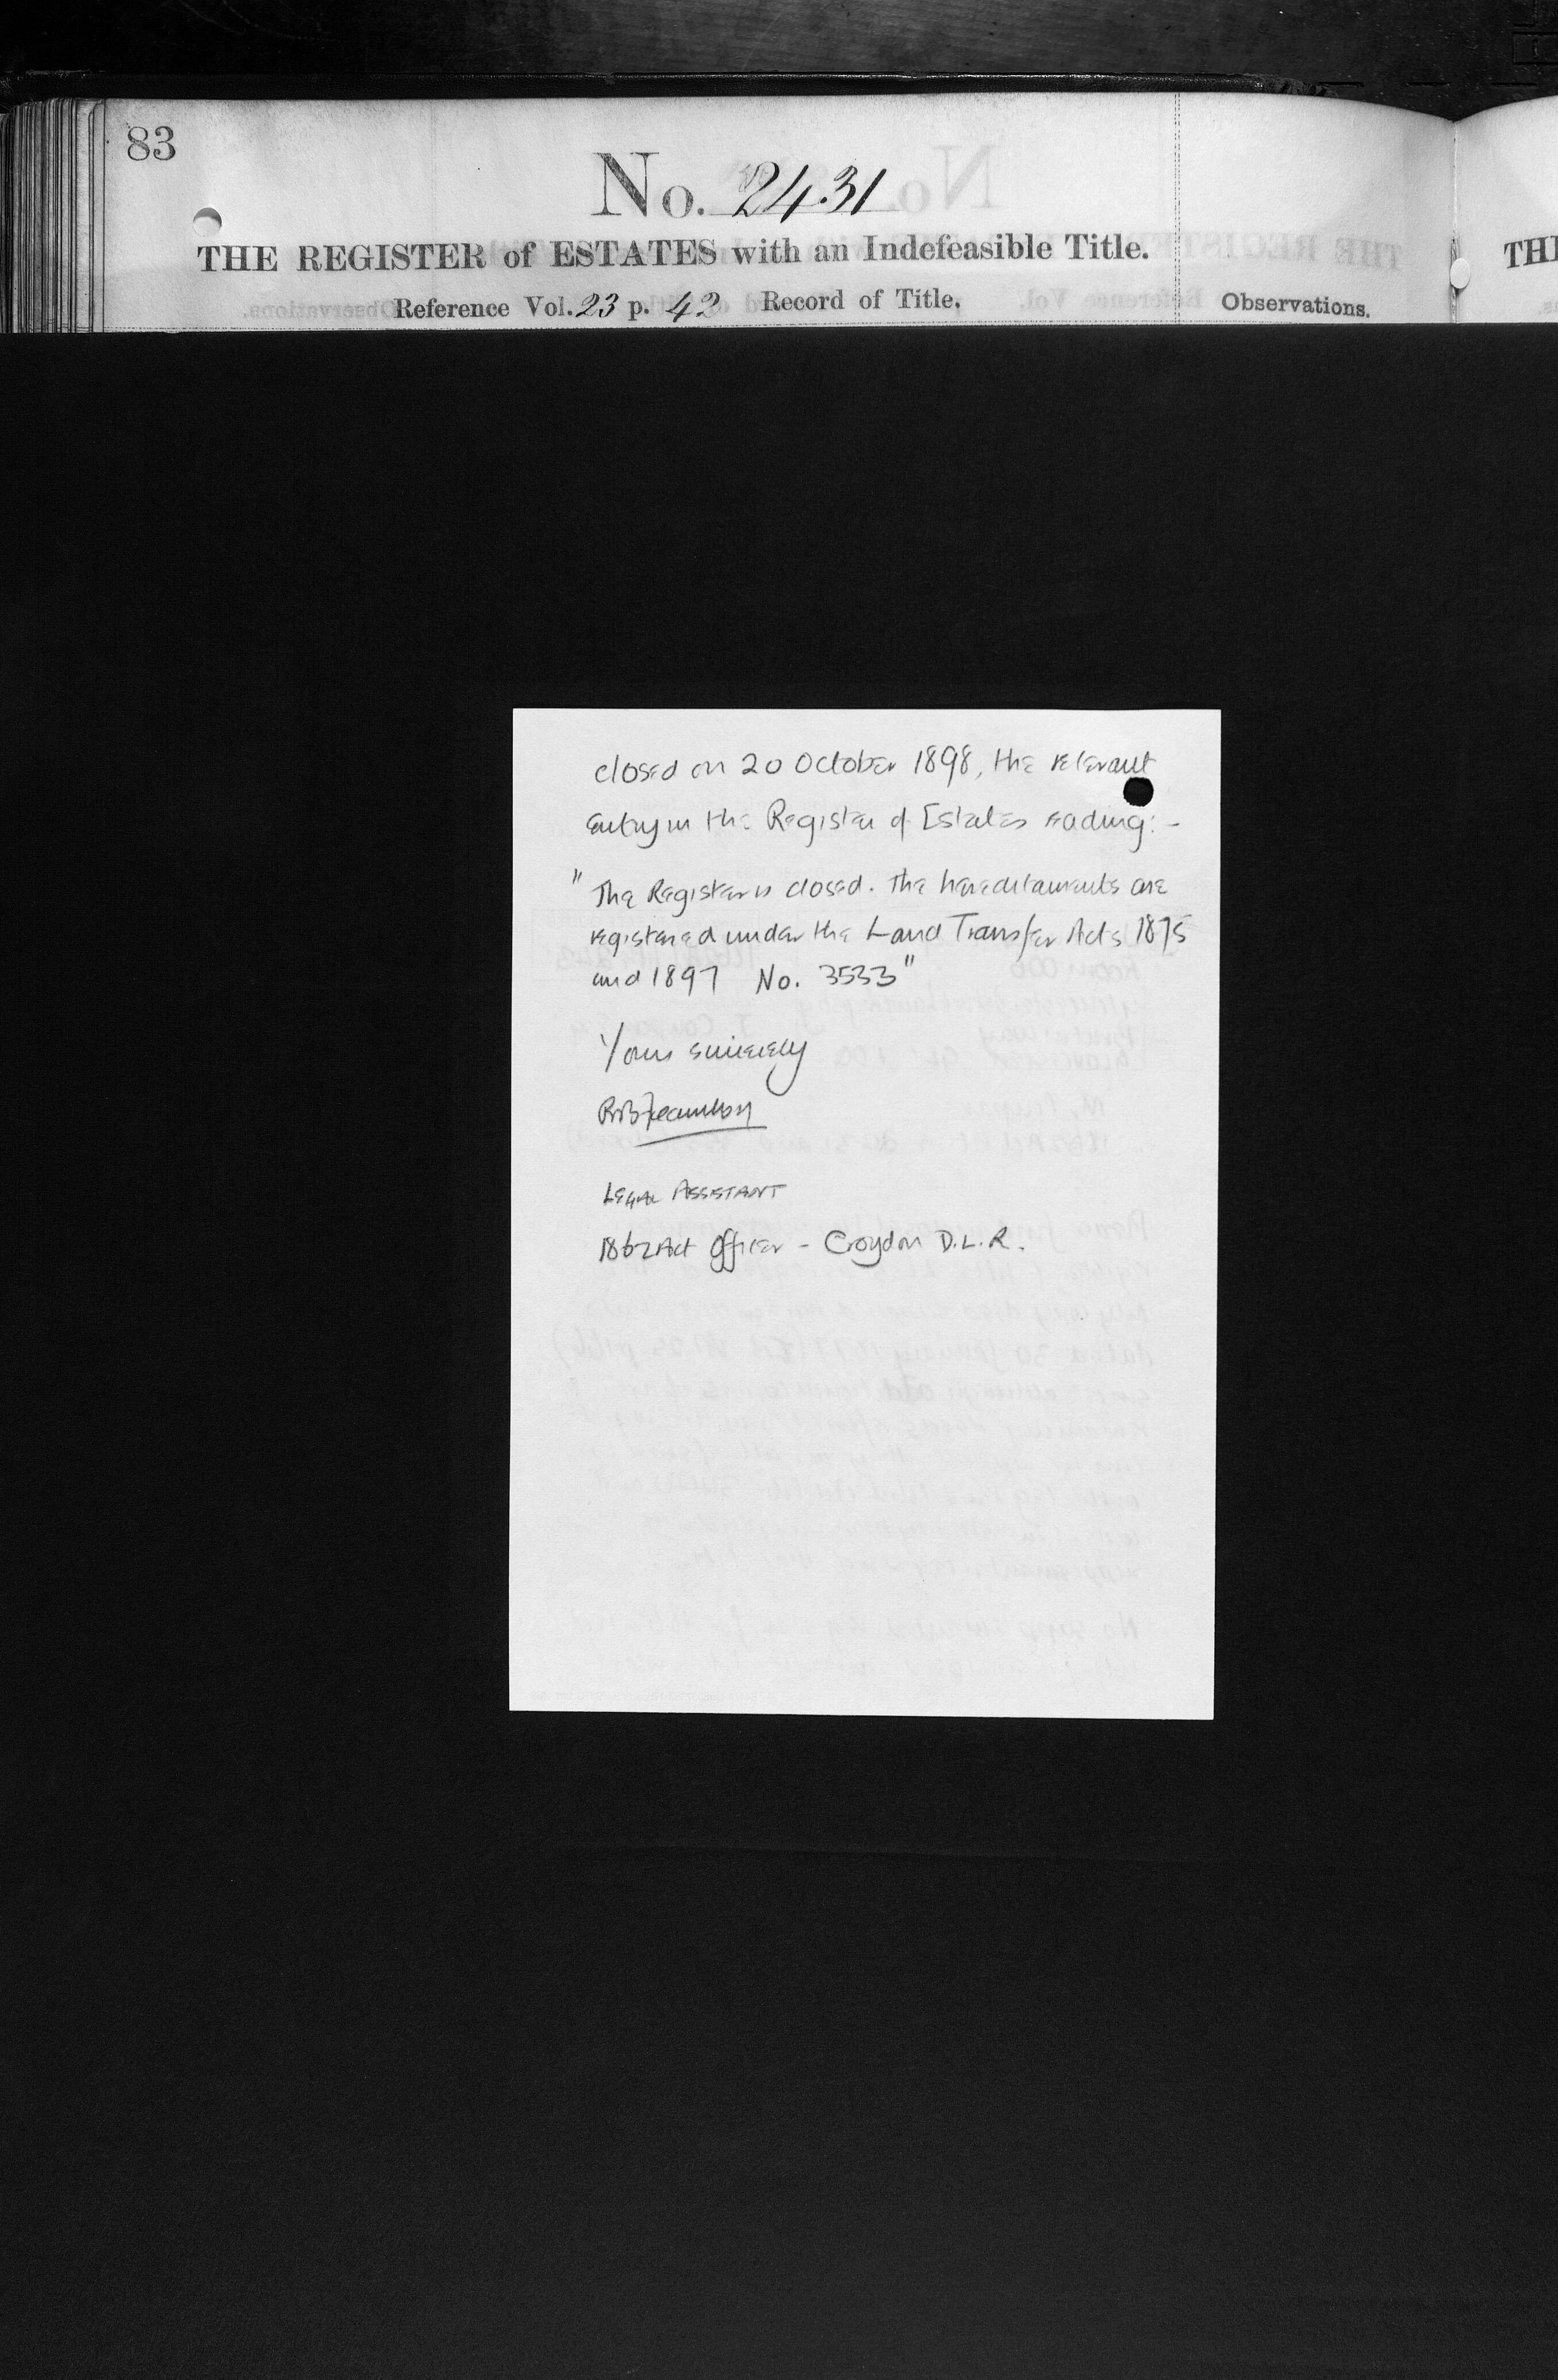 83
No. 2431
THE REGISTER of ESTATES with an Indefeasible Title.
Reference Vol. 23 p. 42 Record of Title.
Observations.
TH
closed on 20 October 1898, the relevant
entry in the Register of Estates reading:-
"The Register is closed. The hereditaments are
registered under the Land Transfer Acts 1875
and 1897 No. 3533"
Yours sincerely
LEGAL ASSISTANT
1862 Act Officer - Croydon D.L.R.